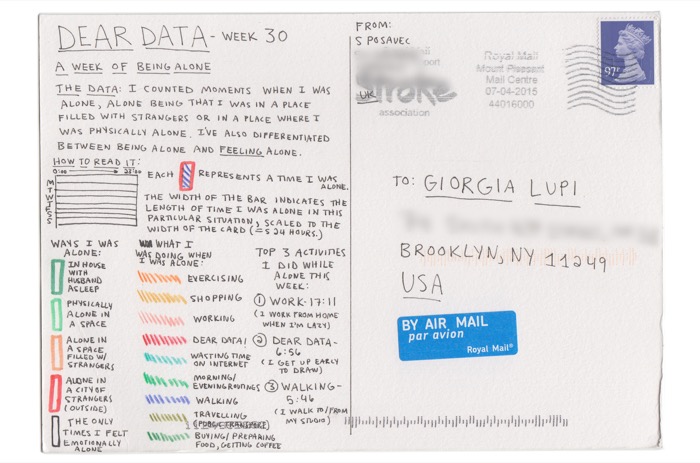 DEAR DATA - WEEK 30
A WEEK OF BEING ALONE
THE DATA: I COUNTED MOMENTS WHEN I WAS
ALONE, ALONE BEING THAT I WAS IN A PLACE
FILLED WITH STRANGERS OR IN A PLACE WHERE I
WAS PHYSICALLY ALONE. I'VE ALSO DIFFERENTIATED
BETWEEN BEING ALONE AND FEELING ALONE.
HOW TO READ IT:
0:00 → 23:00
M
T
W
T
F
S
S
EACH REPRESENTS A TIME I WAS
ALONE.
THE WIDTH OF THE BAR INDICATES THE
LENGTH OF TIME I WAS ALONE IN THIS
PARTICULAR SITUATION, SCALED TO THE
WIDTH OF THE CARD (24 HOURS.)
WAYS I WAS
ALONE:
IN HOUSE
WITH
HUSBAND
ASLEEP
PHYSICALLY
ALONE IN
A SPACE
ALONE IN
A SPACE
FILLED W/
STRANGERS
ALONE IN
A CITY OF
STRANGERS
(OUTSIDE)
THE ONLY
TIMES I FELT
EMOTIONALLY
ALONE
WHAT I
WAS DOING WHEN
I WAS ALONE:
EXERCISING
SHOPPING
WORKING
DEAR DATA!
WASTING TIME
ON INTERNET
MORNING/
EVENING ROUTINES
WALKING
TRAVELLING
(PUBLIC TRANSPORT)
BUYING/PREPARING
FOOD, GETTING COFFEE
TOP 3 ACTIVITIES
I DID WHILE
ALONE THIS
WEEK:
① WORK-17:11
(I WORK FROM HOME
WHEN I'M LAZY)
② DEAR DATA-
6:56
(I GET UP EARLY
TO DRAW)
③ WALKING-
5:46
(I WALK TO/FROM
MY STUDIO)
FROM:
S POSAVEC
UK
stroke
association
Royal Mail
Mount Pleasant
Mail Centre
07-04-2015
44016000
97P
TO: GIORGIA LUPI
BROOKLYN, NY 11249
USA
BY AIR MAIL
par avion
Royal Mail®